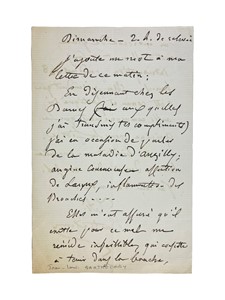 Dimanche - 2 h. de relevée
j'ajoute un mot à ma
lettre de ce matin:
En Déjeunant chez les
Dames auxquelles
j'ai transmis tes compliments)
j'ai eu occasion de parler
de la maladie d'
angine couenneuse affection
de Larynx, inflammation des
Bronches
Elles m'ont assuré qu'il
existe pour ce mal un
remède infaillible, qui consiste
à tenir dans la bouche,